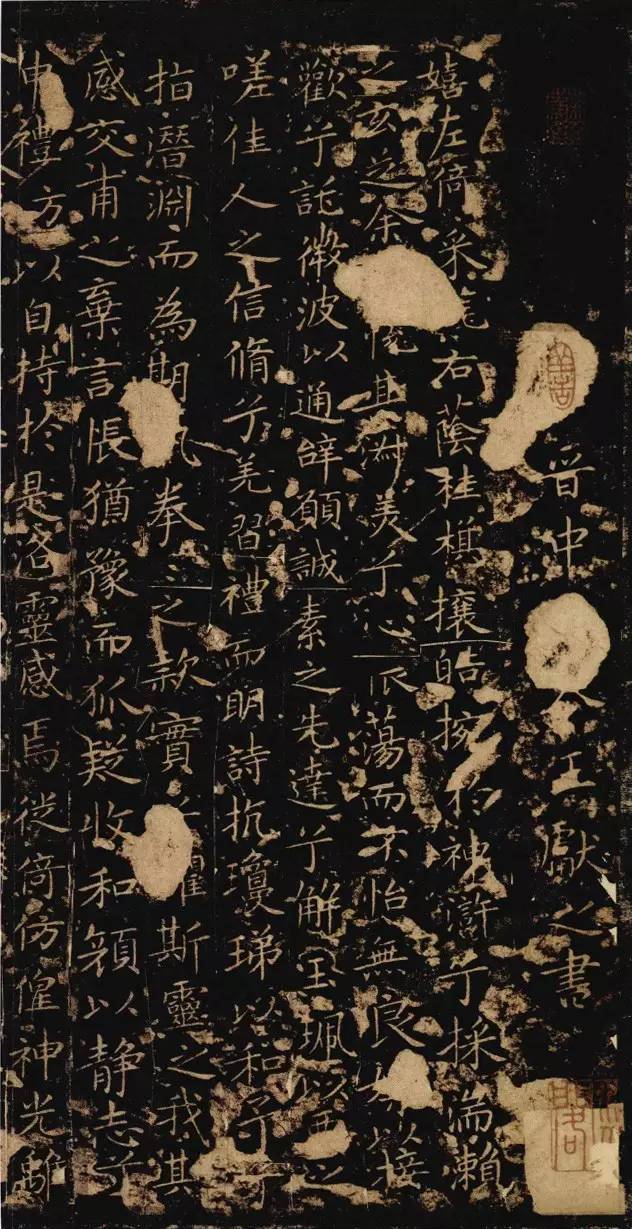 晉中 令王獻之書
嬉左倚采旄右蔭桂旗攘皓捥於神滸兮採湍瀨
之玄芝余 悅其淑美兮心 蕩而不怡無良媒以接
歡兮託微波以通辭願誠素之先達兮解玉珮以要之
嗟佳人之信脩兮羌習禮而明詩抗瓊珶以和予兮
指潛淵而為期執拳〻之款實兮懼斯靈之我欺
感交甫之棄言悵猶豫而狐疑收和顏以靜志兮
申禮方以自持於是洛靈感焉徙倚仿偟神光離